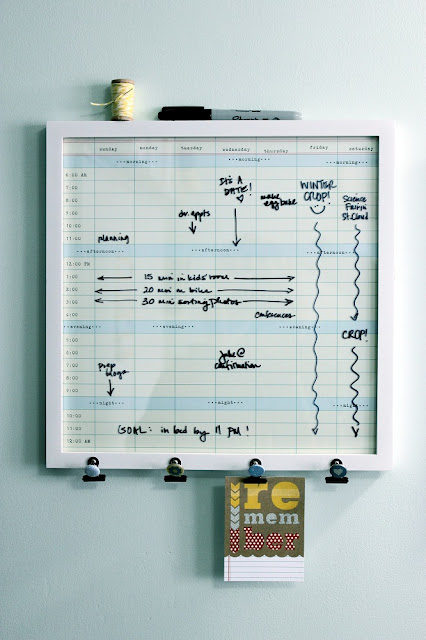 Sharpie
sunday monday tuesday wednesday thursday friday saturday
···morning··· ···morning··· ···morning···
6:00 AM
7:00
8:00
9:00
10:00
11:00
IT'S A
DATE!
make
egg bake
WINTER
CROP!
Science
Fair in
St. Cloud
dr. appts
planning
···afternoon··· ···afternoon··· ···afternoon···
12:00 PM
1:00
2:00
3:00
4:00
15 min in kids' room
20 min on bike
30 min sorting photos
conferences
···evening··· ···evening··· ···evening···
CROP!
5:00
6:00
7:00
8:00
9:00
jake @
confirmation
prep
blogs
···night··· ···night··· ···night···
10:00
11:00
12:00 AM
GOAL: in bed by 11 PM!
re
mem
ber